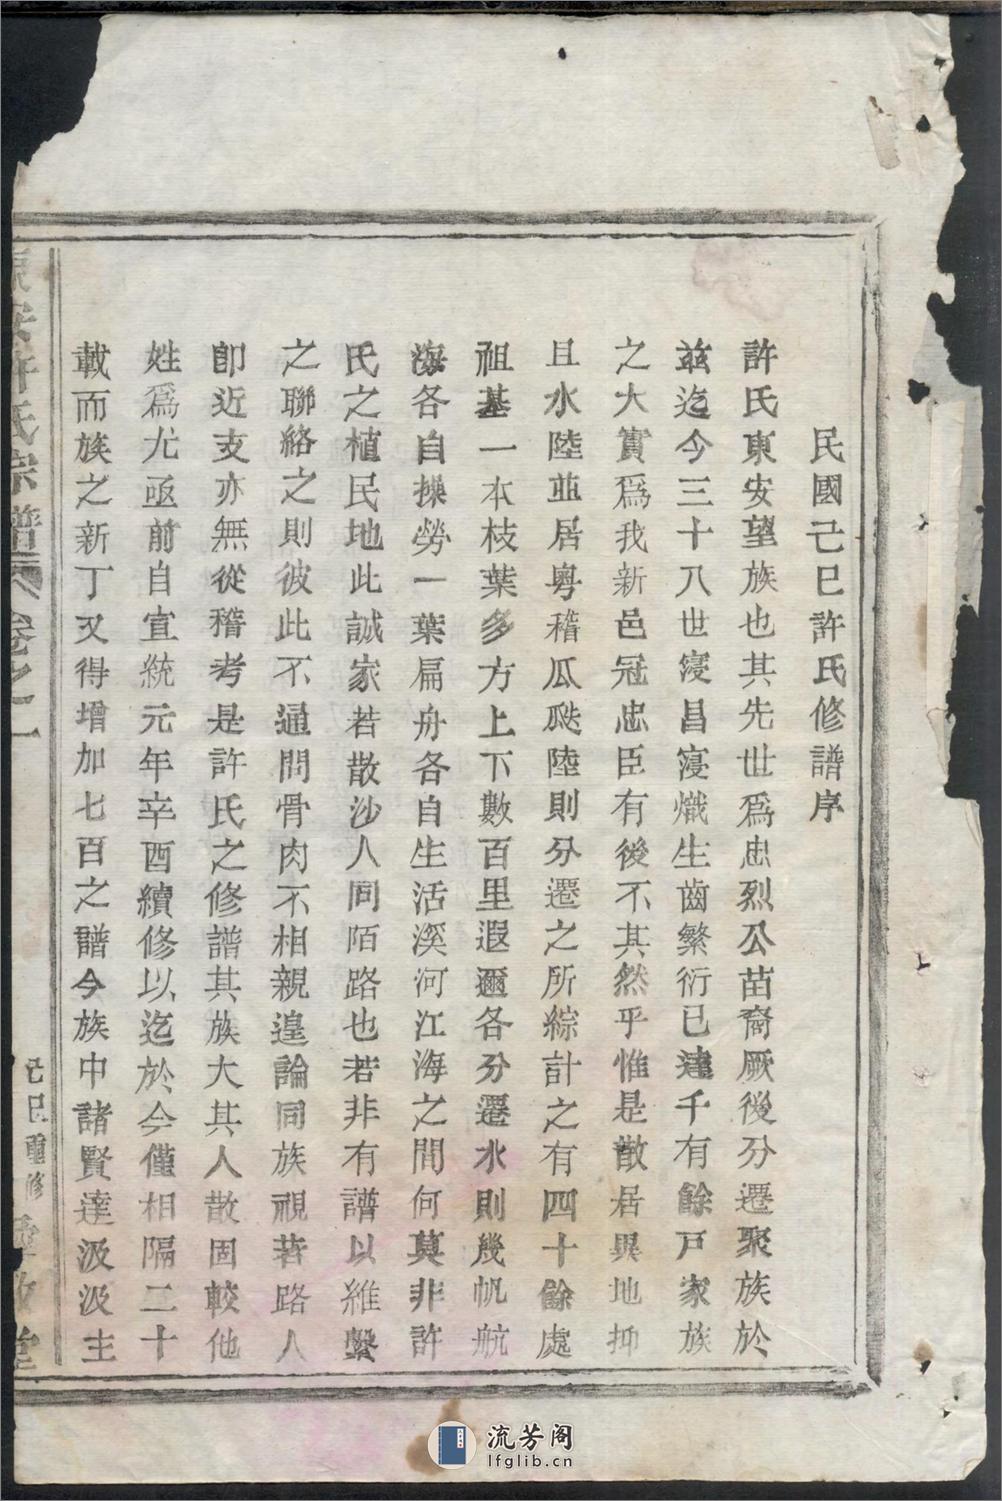 民國己巳許氏修譜序
許氏東安望族也其先世爲忠烈公苗裔厥後分遷聚族於
茲迄今三十八世寖昌寖熾生齒繁衍已達千有餘戸家族
之大實爲我新邑冠忠臣有後不其然乎惟是散居異地抑
且水陸並居粤稽瓜瓞陸則分遷之所綜計之有四十餘處
祖基一本枝葉多方上下數百里遐邇各分遷水則幾帆航
海各自操勞一葉扁舟各自生活溪河江海之間何莫非許
氏之植民地此誠家若散沙人同陌路也若非有譜以維繫
之聯絡之則彼此不通問骨肉不相親遑論同族視若路人
卽近支亦無從稽考是許氏之修譜其族大其人散固較他
姓爲尤亟前自宣統元年辛酉續修以迄於今僅相隔二十
載而族之新丁又得增加七百之譜今族中諸賢達汲汲主
東安許氏宗譜 卷之一 己巳重修 堂
流芳阁
lfglib.cn